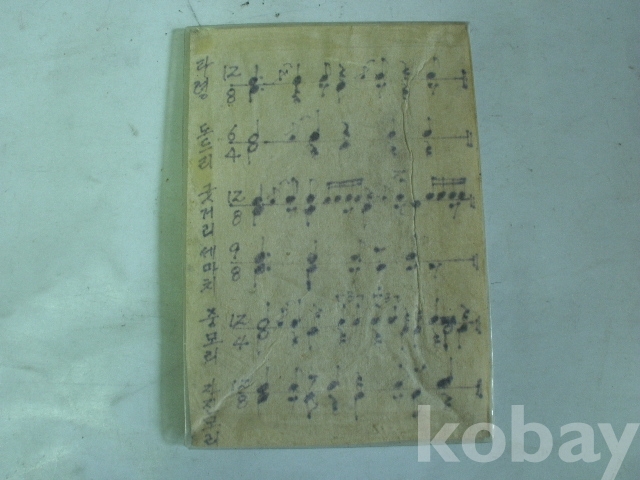 타령 12/8
도드리 6/4
굿거리 12/8
세마치 9/8
중모리 12/4
kobay